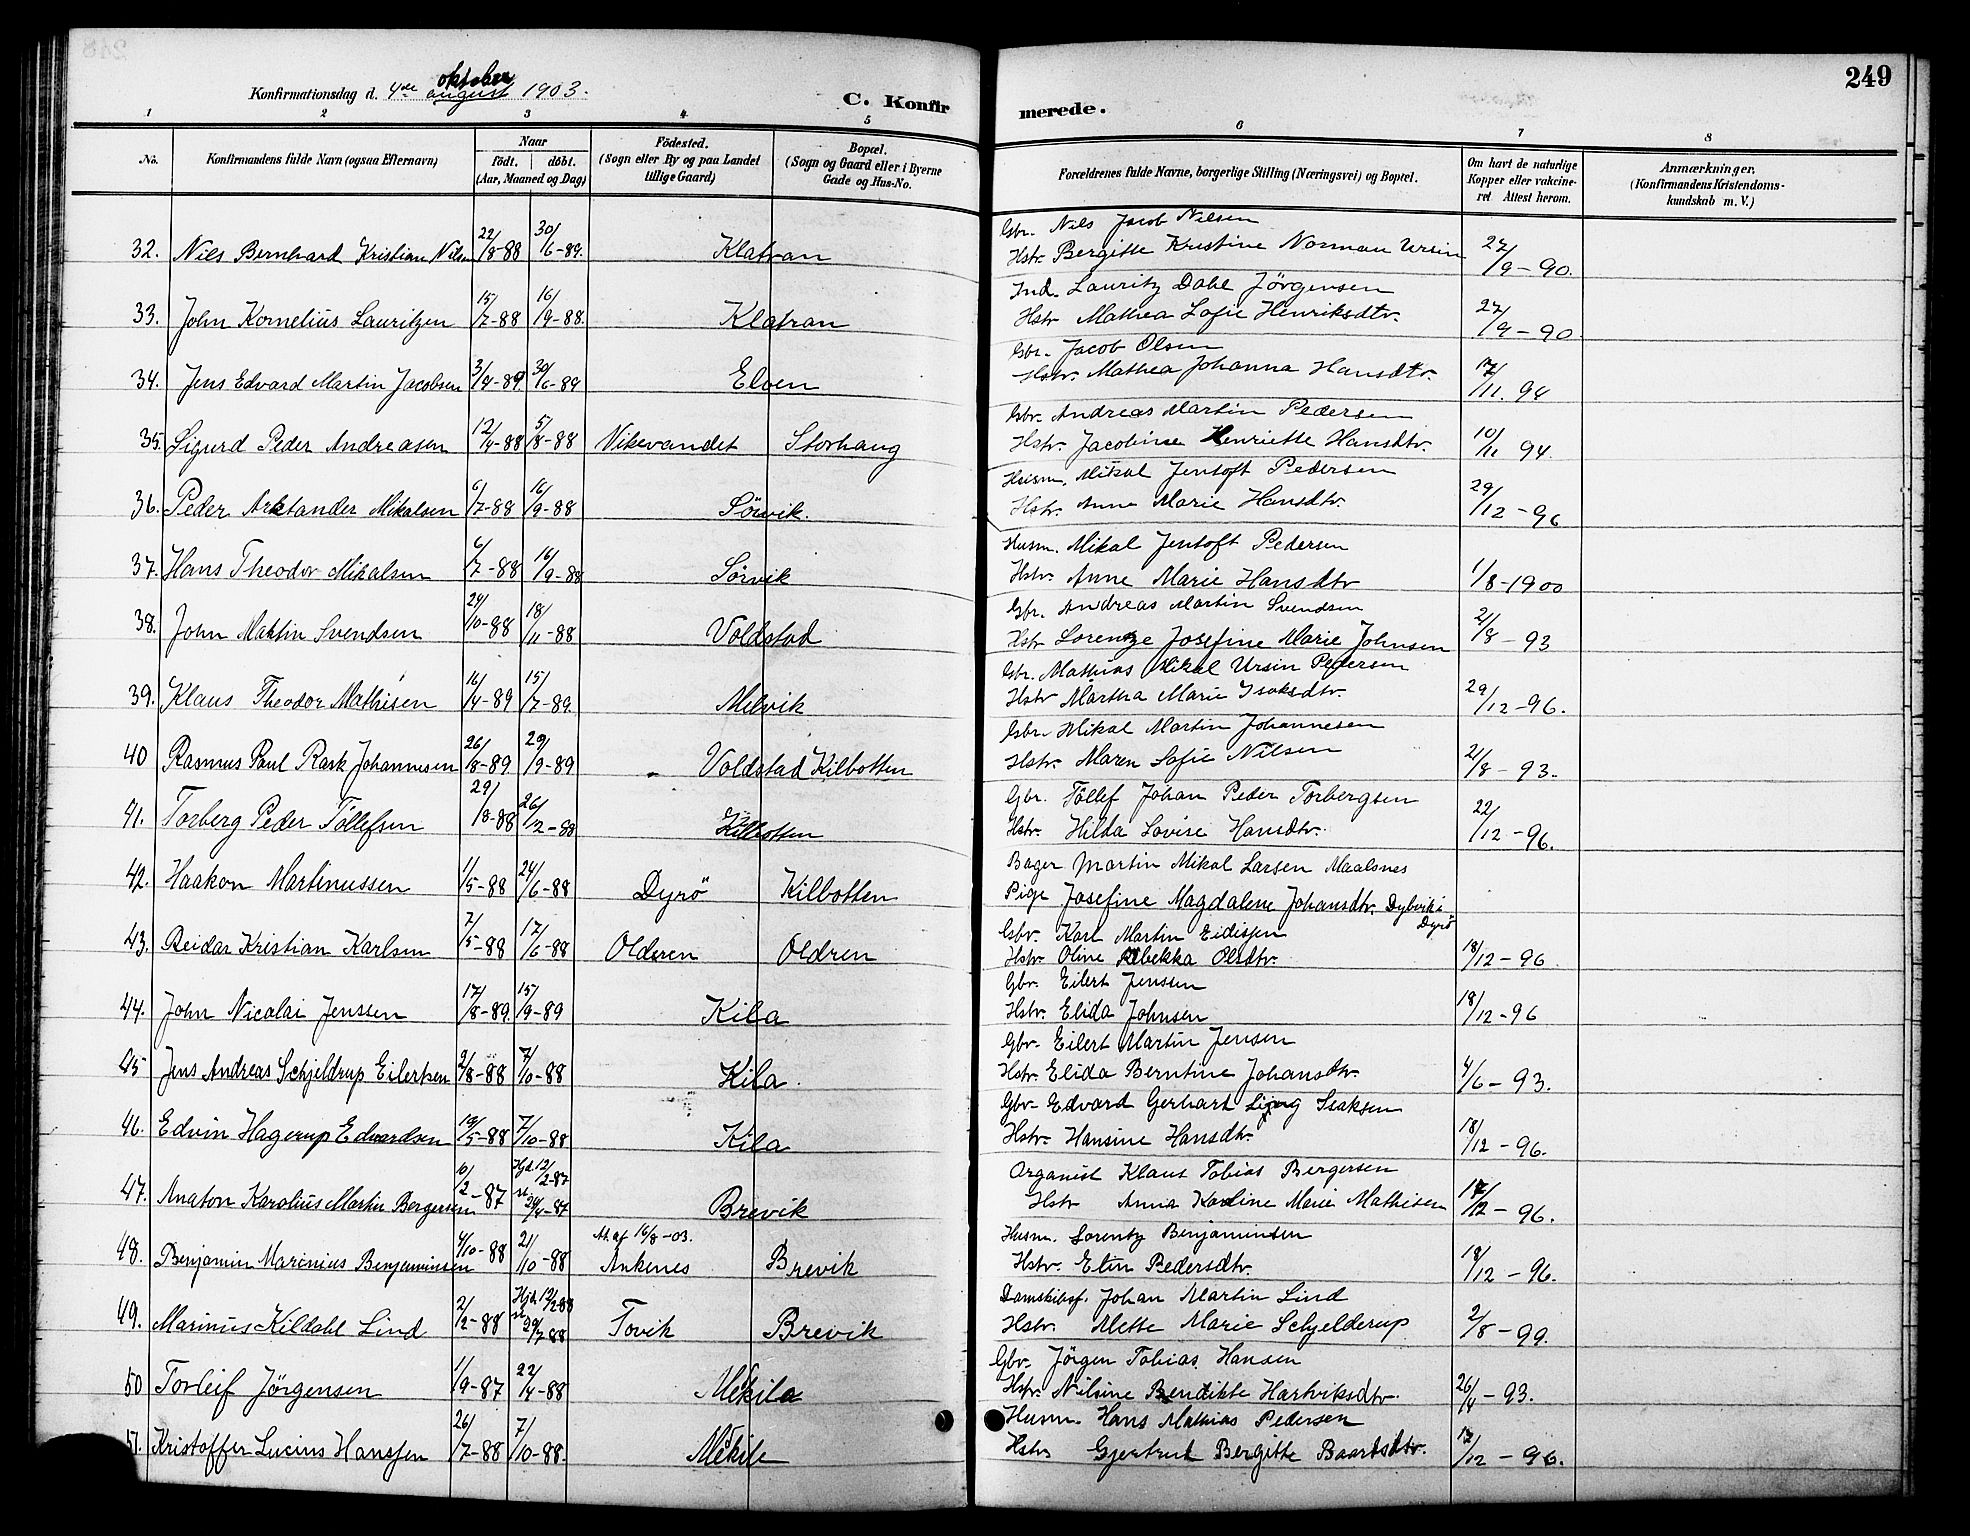 249
Konfirmationsdag d. 4de august oktober 1903.
C. Konfirmerede.
1 2 3 4 5 6 7 8
No. Konfirmandens fulde Navn (ogsaa Efternavn) Naar født. døbt. (Aar, Maaned og Dag) Födested. (Sogn eller By og paa Landet tillige Gaard) Bopæl. (Sogn og Gaard eller i Byerne Gade og Hus-No. Forældrenes fulde Navne, borgerlige Stilling (Næringsvei) og Bopæl. Om havt de naturlige Kopper eller vakcineret Attest herom. Anmærkninger. (Konfirmandens Kristendomskundskab m. V.)
Gbr. Nils Jacob Nilsen
32. Nils Bernhard Kristian Nilsen 22/8-88 30/6-89. Klafran Hstr. Bergitte Kristine Norman Ursin 27/9-90.
Ind. Lauritz Dahl Jörgensen
33. John Kornelius Lauritzen 15/7-88 16/9-88. Klafran Hstr Mathea Sofie Henriksdtr. 27/9-90.
Gbr. Jacob Olsen
34. Jens Edvard Martin Jacobsen 3/4-89. 30/6-89 Elven Hstr. Mathea Johanna Hansdtr. 17/11. 94
Gbr. Andreas Martin Pedersen
35. Sigurd Peder Andreasen 12/4-88 5/8-88 Vikevandet Storhaug Hstr. Jacobine Henriette Hansdtr. 10/11 94
Husm. Mikal Jentoft Pedersen
36. Peder Arktander Mikalsen 6/7-88 16/9-88 Sörvik. Hstr. Anne Marie Hansdtr. 29/12-96
Husm. Mikal Jentoft Pedersen
37. Hans Theodor Mikalsen 6/7-88 16/9-88 Sörvik Hstr. Anne Marie Hansdtr 1/8-1900
Gbr. Andreas Martin Svendsen
38. John Martin Svendsen 24/10-88 18/11-88 Voldstad Hstr Lorentze Josefine Marie Johnsen 2/8-93
Gbr. Mathias Mikal Ursin Pedersen
39. Klaus Theodor Mathisen 16/4-89 15/7-89. Melvik Hstr Martha Marie Isaksdtr. 29/12-96.
Gbr. Mikal Martin Johannesen
40 Rasmus Paul Rask Johannesen 26/8-89. 29/9-89 Voldstad Kilbotten Hstr. Maren Sofie Nilsen 2/8-93.
Gbr. Töllef Johan Peder Torbergsen
41. Torberg Peder Töllefsen 29/8-88 26/12-88 Kilbotten Hstr. Hilda Lovise Hansdtr. 22/12-96.
Bager Martin Mikal Larsen Maalsnes
42. Haakon Martinussen 1/5-88 24/6-88 Dyrö Kilbotten Pige Josefine Magdalene Johansdtr. Dybvik i Dyrö
Gbr. Karl Martin Eidissen
43. Reidar Kristian Karlsen 7/5-88 17/6-88 Olderen Oldren Hstr. Oline Rebekka Olsdtr. 18/12-96
Gbr. Eilert Jenssen
44. John Nicolai Jenssen 17/8-89. 15/9-89 Kila Hstr. Elida Johnsen 18/12-96
Gbr. Eilert Martin Jensen
45 Jens Andreas Schjeldrup Eilertsen 2/8-88 7/10-88 Kila. Hstr. Elida Berntine Johansdtr. 4/6-93.
Gbr. Edvard Gerhart Isaksen
46. Edvin Hagerup Edvardsen 19/5-88 7/10-88 Kila Hstr. Hansine Hansdtr. 18/12-96.
Organist Klaus Tobias Bergersen
47. Anaton Karolius Martin Bergersen 10/2-87 Hjd. 12/2-87 st 24/4-87 Brevik Hstr Anna Karoline Marie Mathisen 17/12-96.
Husm. Lorentz Benjaminsen
48. Benjamin Marinius Benjaminsen 4/10-88 21/10-88 At. af 16/8-03. Ankenes Brevik Hstr. Elen Pedersdtr. 18/12-96.
Damskibsf. Johan Martin Lind
49. Marinus Kildahl Lind 2/2-88 Hjd. 12/2-88 st 29/7-88 Tovik Brevik Hstr. Mette Marie Schjelderup 2/8-99.
Gbr. Jörgen Tobias Hansen
50 Torleif Jörgensen 1/9-87 22/4-88 Mekila Hstr. Nilsine Bendikte Hartviksdtr. 26/4-93.
Husm. Hans Mathias Pedersen
51. Kristoffer Lucius Hanssen 26/7-88 7/10-88. Mekile Hstr Gjertrud Bergitte Baartsdtr. 13/12-96.